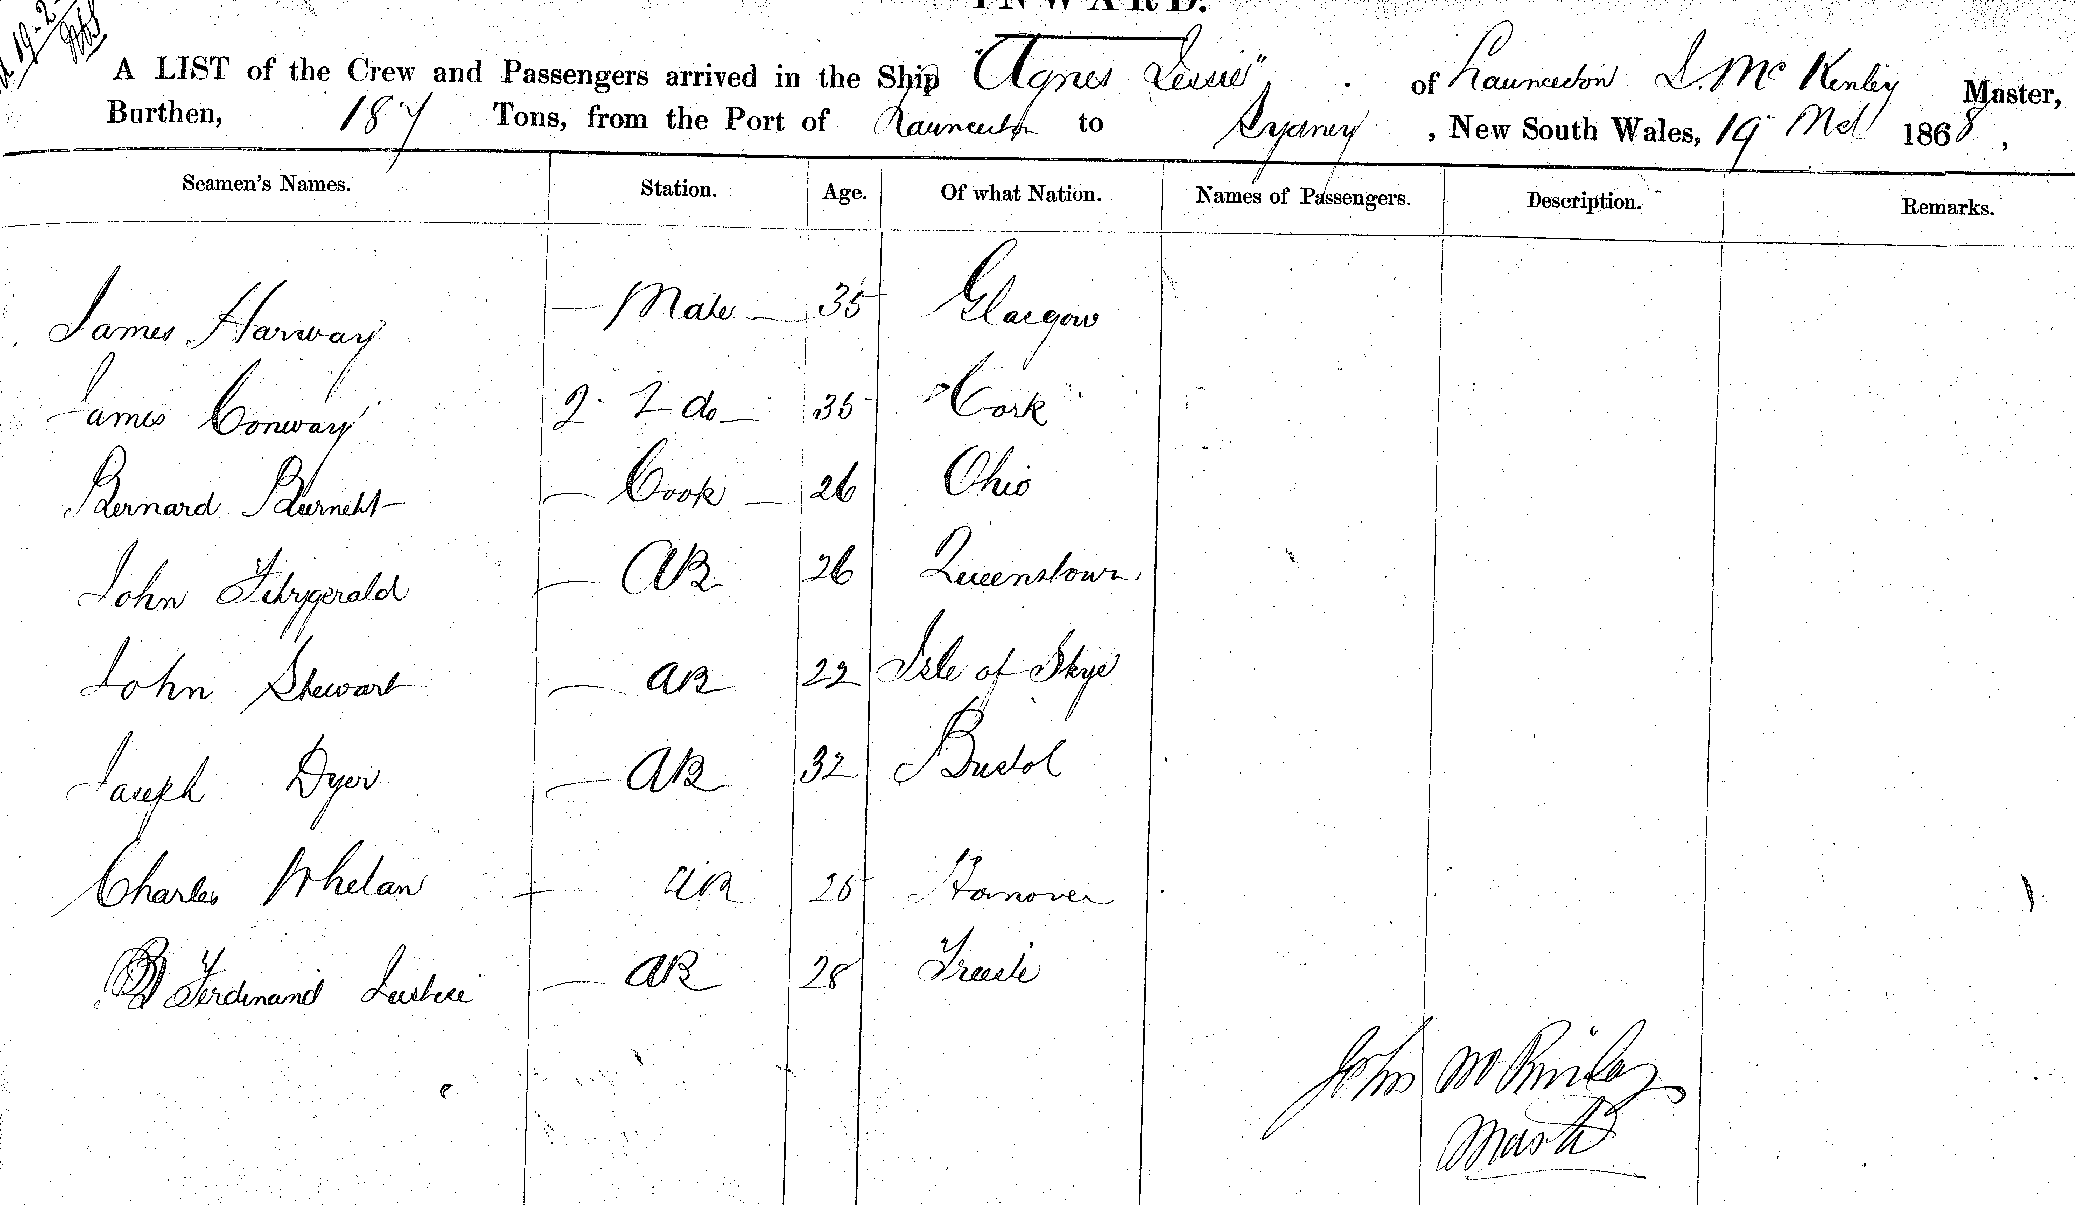 INWARD.
A LIST of the Crew and Passengers arrived in the Ship "Agnes Jessie" of Launceston J. Mc Kenley Master,
Burthen, 187 Tons, from the Port of Launceston to Sydney, New South Wales, 19 1868,
Seamen's Names. Station. Age. Of what Nation. Names of Passengers. Description. Remarks.
James Harway — Mate — 35 Glasgow
James Conway 2 do — 35 Cork
Bernard Burnett — Cook — 26 Ohio
John Fitzgerald — AB 26 Queenstown
John Stewart — AB 22 Isle of Skye
Joseph Dyer — AB 32 Bristol
Charles Whelan — AB 25 Hanover
Ferdinand — AB 28 Trieste
John McKinlay
Master